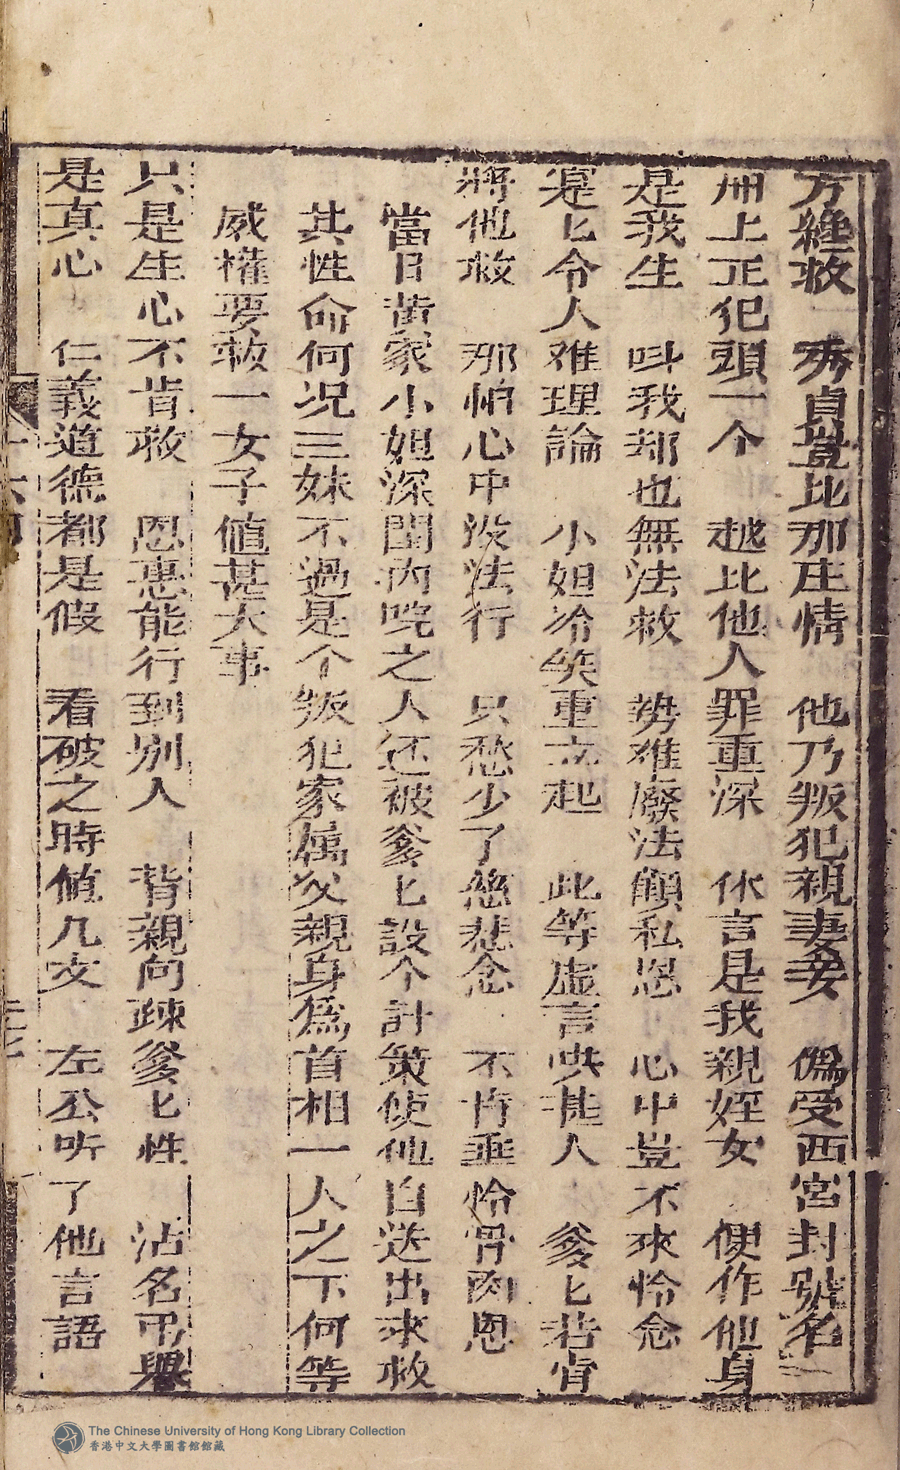 方維救 秀貞豈比那庄情 他乃叛犯親妻妾 偽受西宮封號名
冊上正犯頭一个 越比他人罪重深 休言是我親姪女 便作他身
是我生 呌我却也無法救 势难廢法顧私恩 心中豈不來怜念
寔匕令人难理論 小姐冷笑重立起 此等虛言哄甚人 爹匕若肯
將他救 那怕心中没法行 只愁少了慈悲念 不肯垂怜骨肉恩
當日黄家小姐深閨内院之人还被爹匕設个計策使他自送出來救
其性命何况三妹不過是个叛犯家属父親身為首相一人之下何等
威權要救一女子值甚大事
只是生心不肯救 恩惠能行到別人 背親向疎爹匕性 沽名弔譽
是真心 仁義道德都是假 看破之時值几文 左公听了他言語
The Chinese University of Hong Kong Library Collection
香港中文大學圖書館館藏